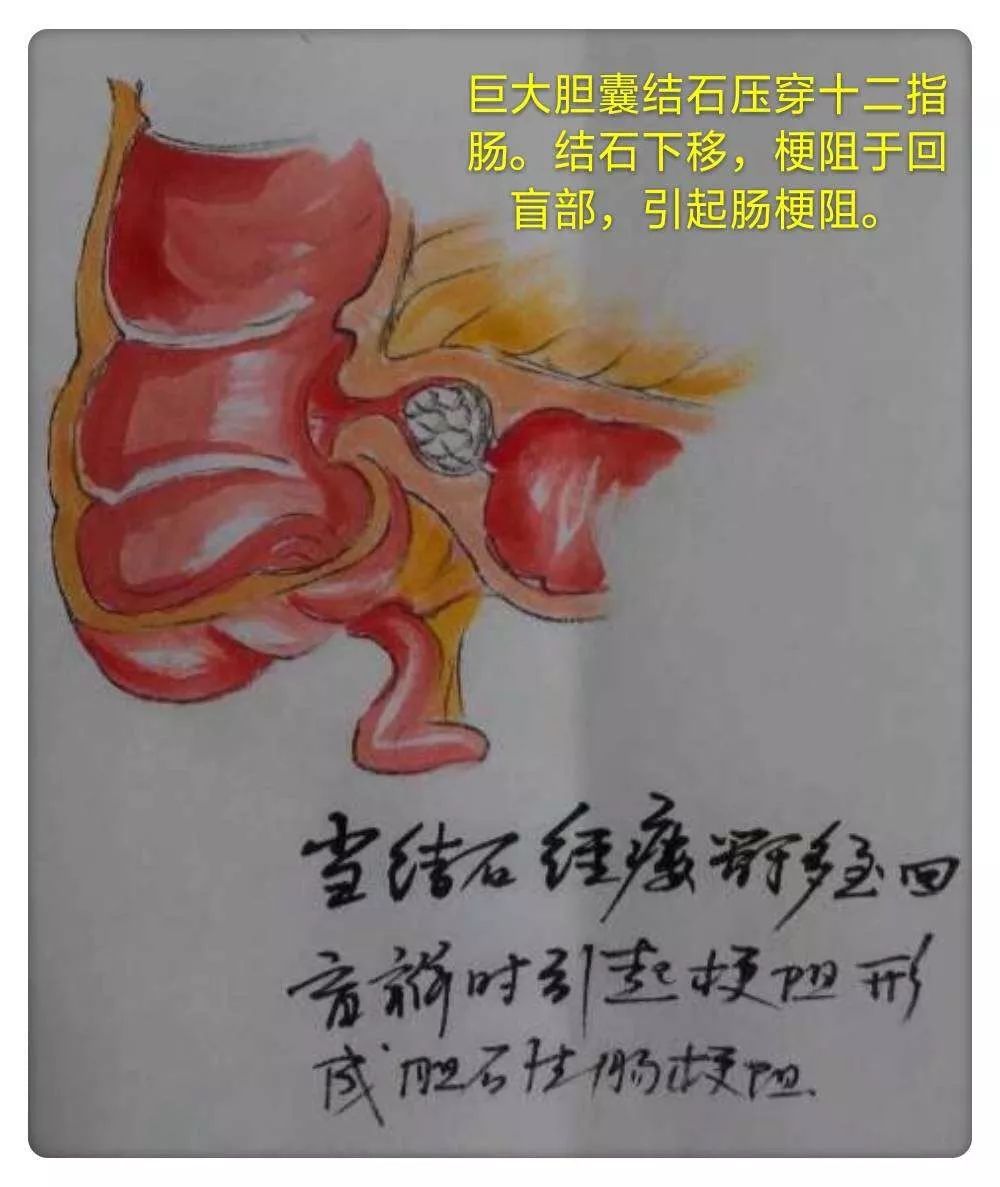 巨大胆囊结石压穿十二指
肠。结石下移，梗阻于回
盲部，引起肠梗阻。
当结石经瘘移至回
盲瓣时引起梗阻形
成胆石性肠梗阻.